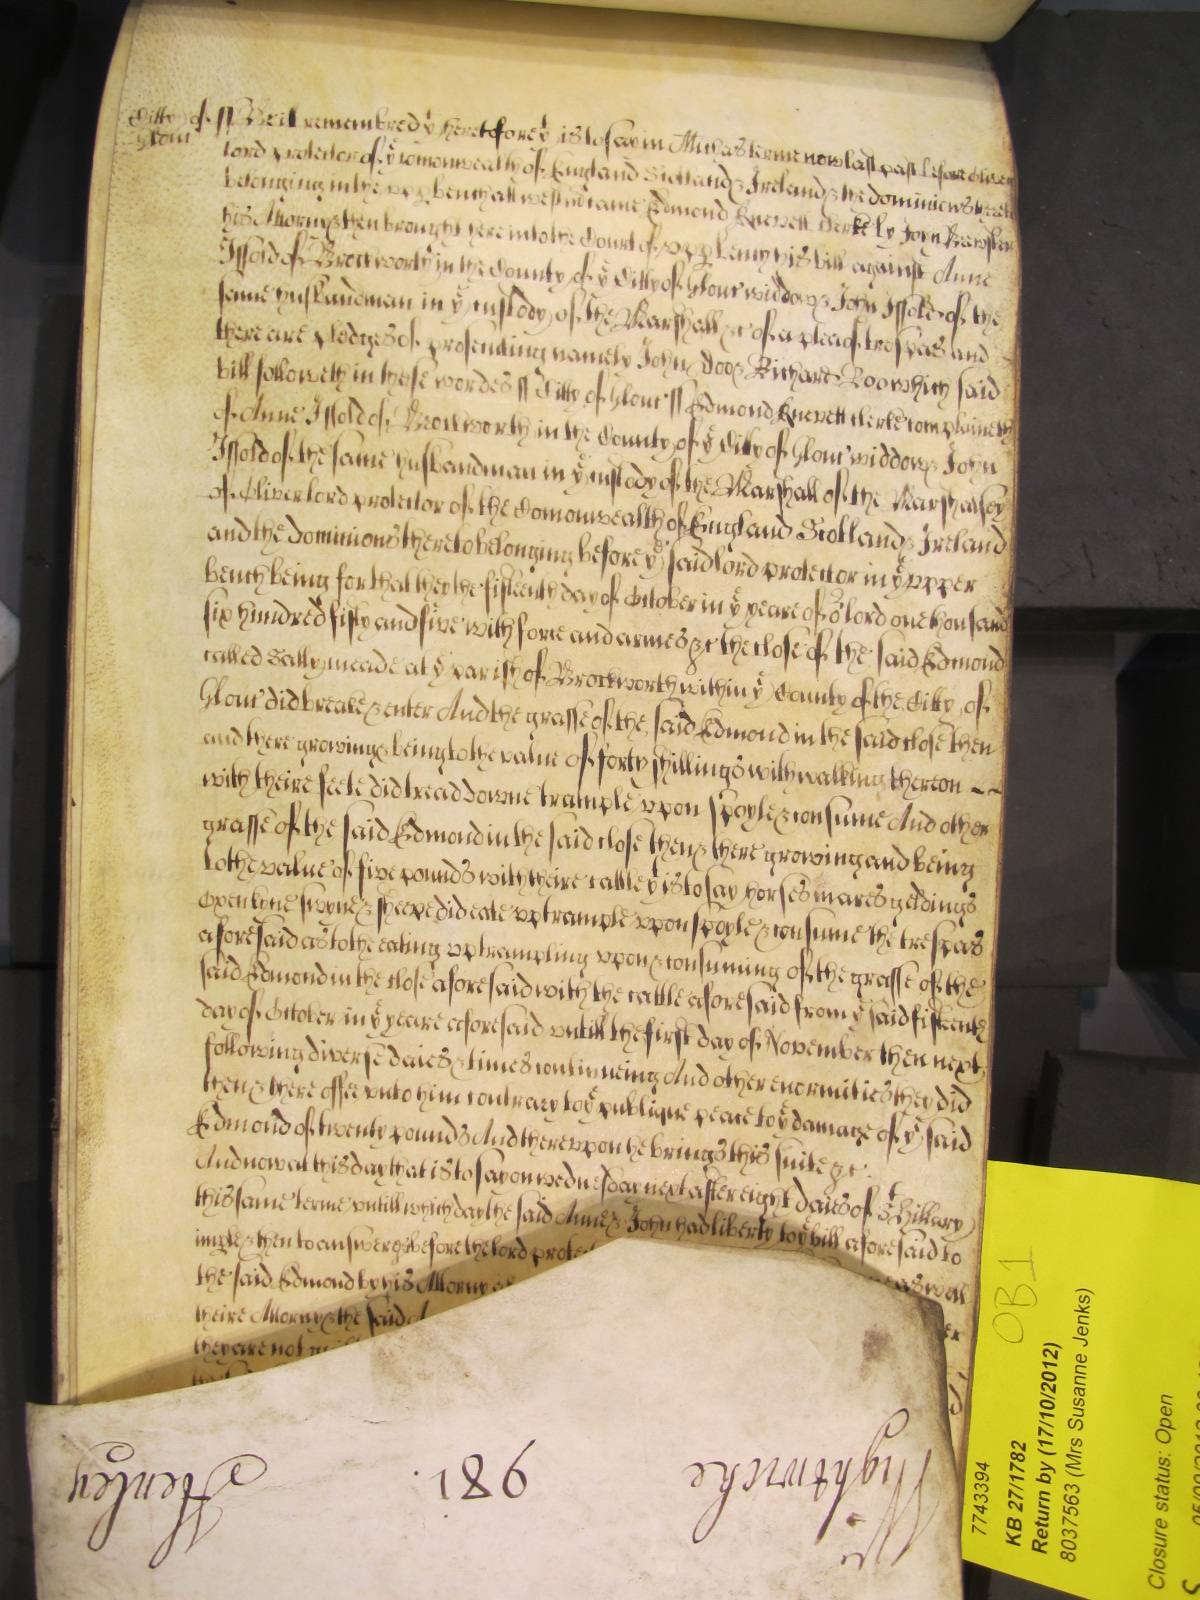 Citty of
Glouc
ss Be it remembred yt heretofore yt is to say in Michas terme now last past before Oliver
lord protector of ye comonwealth of England Scotland & Ireland & the dominions thereto
belonging in the upp bench att westm came Edmond Knevett Clerke by John Brewster
his Attorny & then brought here into the Court of upp bench his bill against Anne
Issold of Brockworth in the County of ye Citty of Glouc widdow & John Issold of the
same husbandman in ye custody of the Marshall &c of a plea of trespas and
there are pledges of prosecuting namely John Doo & Richard Roo which said
bill followeth in these wordes ss Citty of Glouc ss Edmond Knevett clerke complaineth
of Anne Issold of Brockworth in the County of ye Citty of Glouc widdow & John
Issold of the same husbandman in ye custody of the Marshall of the Marshalsey
of Oliver lord protector of the Comonwealth of England Scotland & Ireland
and the dominions thereto belonging before ye said lord protector in ye upper
bench being for that they the fifteenth day of October in ye yeare of or lord one thousand
six hundred fifty and five with force and armes &c the close of the said Edmond
called Sallymeade at ye parish of Brockworth within ye County of the Citty of
Glouc did breake & enter And the grasse of the said Edmond in the said close then
and there growing & being to the value of forty shillings with walking thereon
with theire feete did tread downe trample upon spoyle & consume And other
grasse of the said Edmond in the said close then & there growing and being
to the value of five pounds with theire cattle yt is to say horses mares geldings
Oxen kyne swyne & sheepe did eate up trample upon spoyle & consume the trespas
aforesaid as to the eating up trampling upon & consuming of the grasse of the
said Edmond in the close aforesaid with the cattle aforesaid from ye said fifteenth
day of October in ye yeare aforesaid untill the first day of November then next
following diverse daies & times continueing And other enormities they did
then & there offer unto him contrary to ye publique peace to ye damage of ye said
Edmond of twenty pounds And thereupon he brings this suite &c
And now at this day that is to say on wednesday next after eight daies of St Hillary
this same terme untill which day the said Anne & John had liberty to ye bill aforesaid to
imple & then to answer &c before the lord protec
the said Edmond by his Attorny as well
theire Attorny & the said
they are not
Wightwicke 981 Henley
7743394
KB 27/1782 OB1
Return by (17/10/2012)
8037563 (Mrs Susanne Jenks)
Closure status: Open